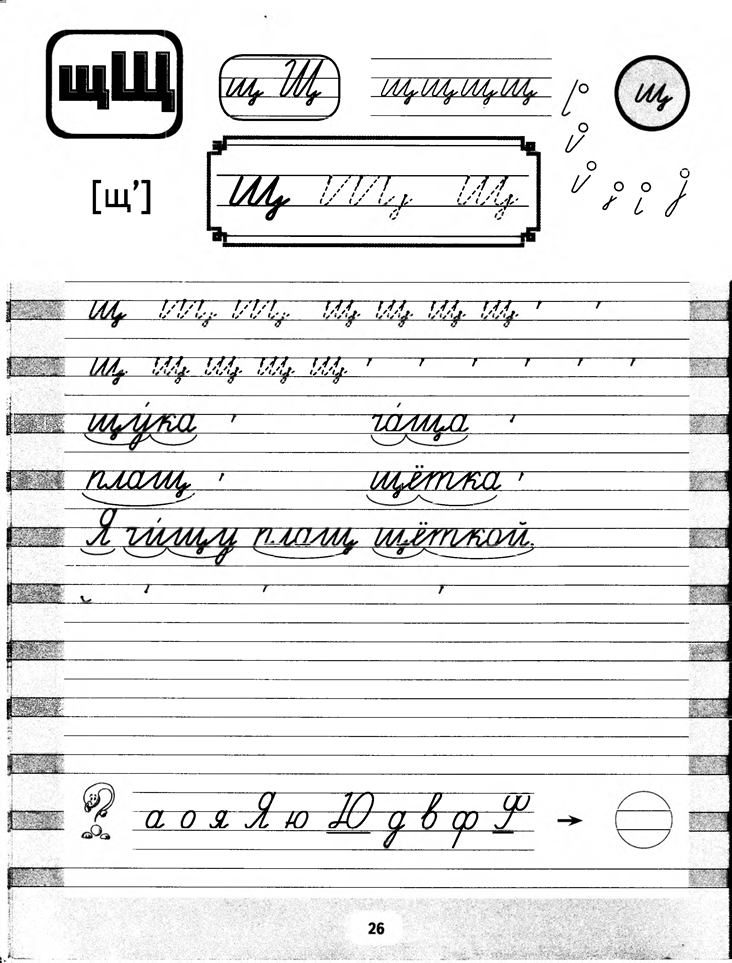 щЩ
щ Щ
щ щ щ щ
щ
[щ’]
Щ Щ Щ
щ щ щ щ щ щ щ
щ щ щ щ щ
щу́ка ча́ща
плащ щётка
Я чи́щу плащ щёткой.
а о я Я ю Ю д в ф Ф
26